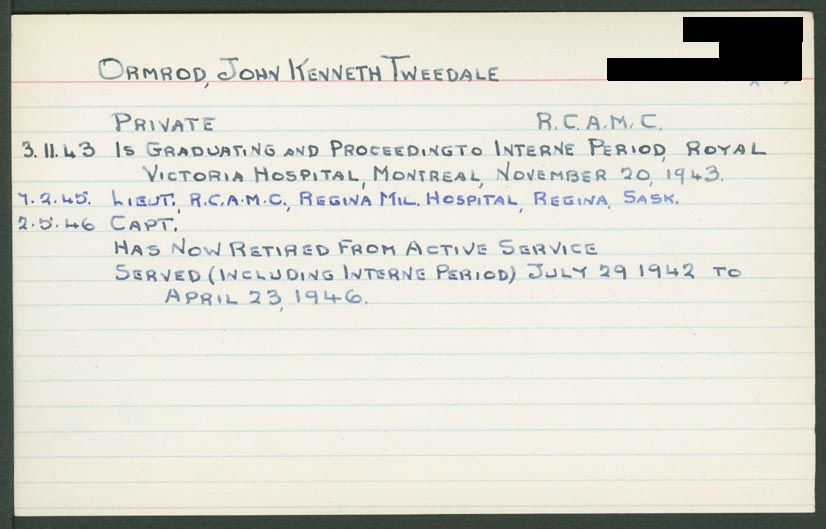 ORMROD, JOHN KENNETH TWEEDALE
PRIVATE R.C.A.M.C.
3.11.43 IS GRADUATING AND PROCEEDING TO INTERNE PERIOD, ROYAL
VICTORIA HOSPITAL, MONTREAL, NOVEMBER 20, 1943.
7.2.45. LIEUT. R.C.A.M.C., REGINA MIL. HOSPITAL, REGINA, SASK.
2.5.46 CAPT.
HAS NOW RETIRED FROM ACTIVE SERVICE
SERVED (INCLUDING INTERNE PERIOD) JULY 29 1942 TO
APRIL 23, 1946.